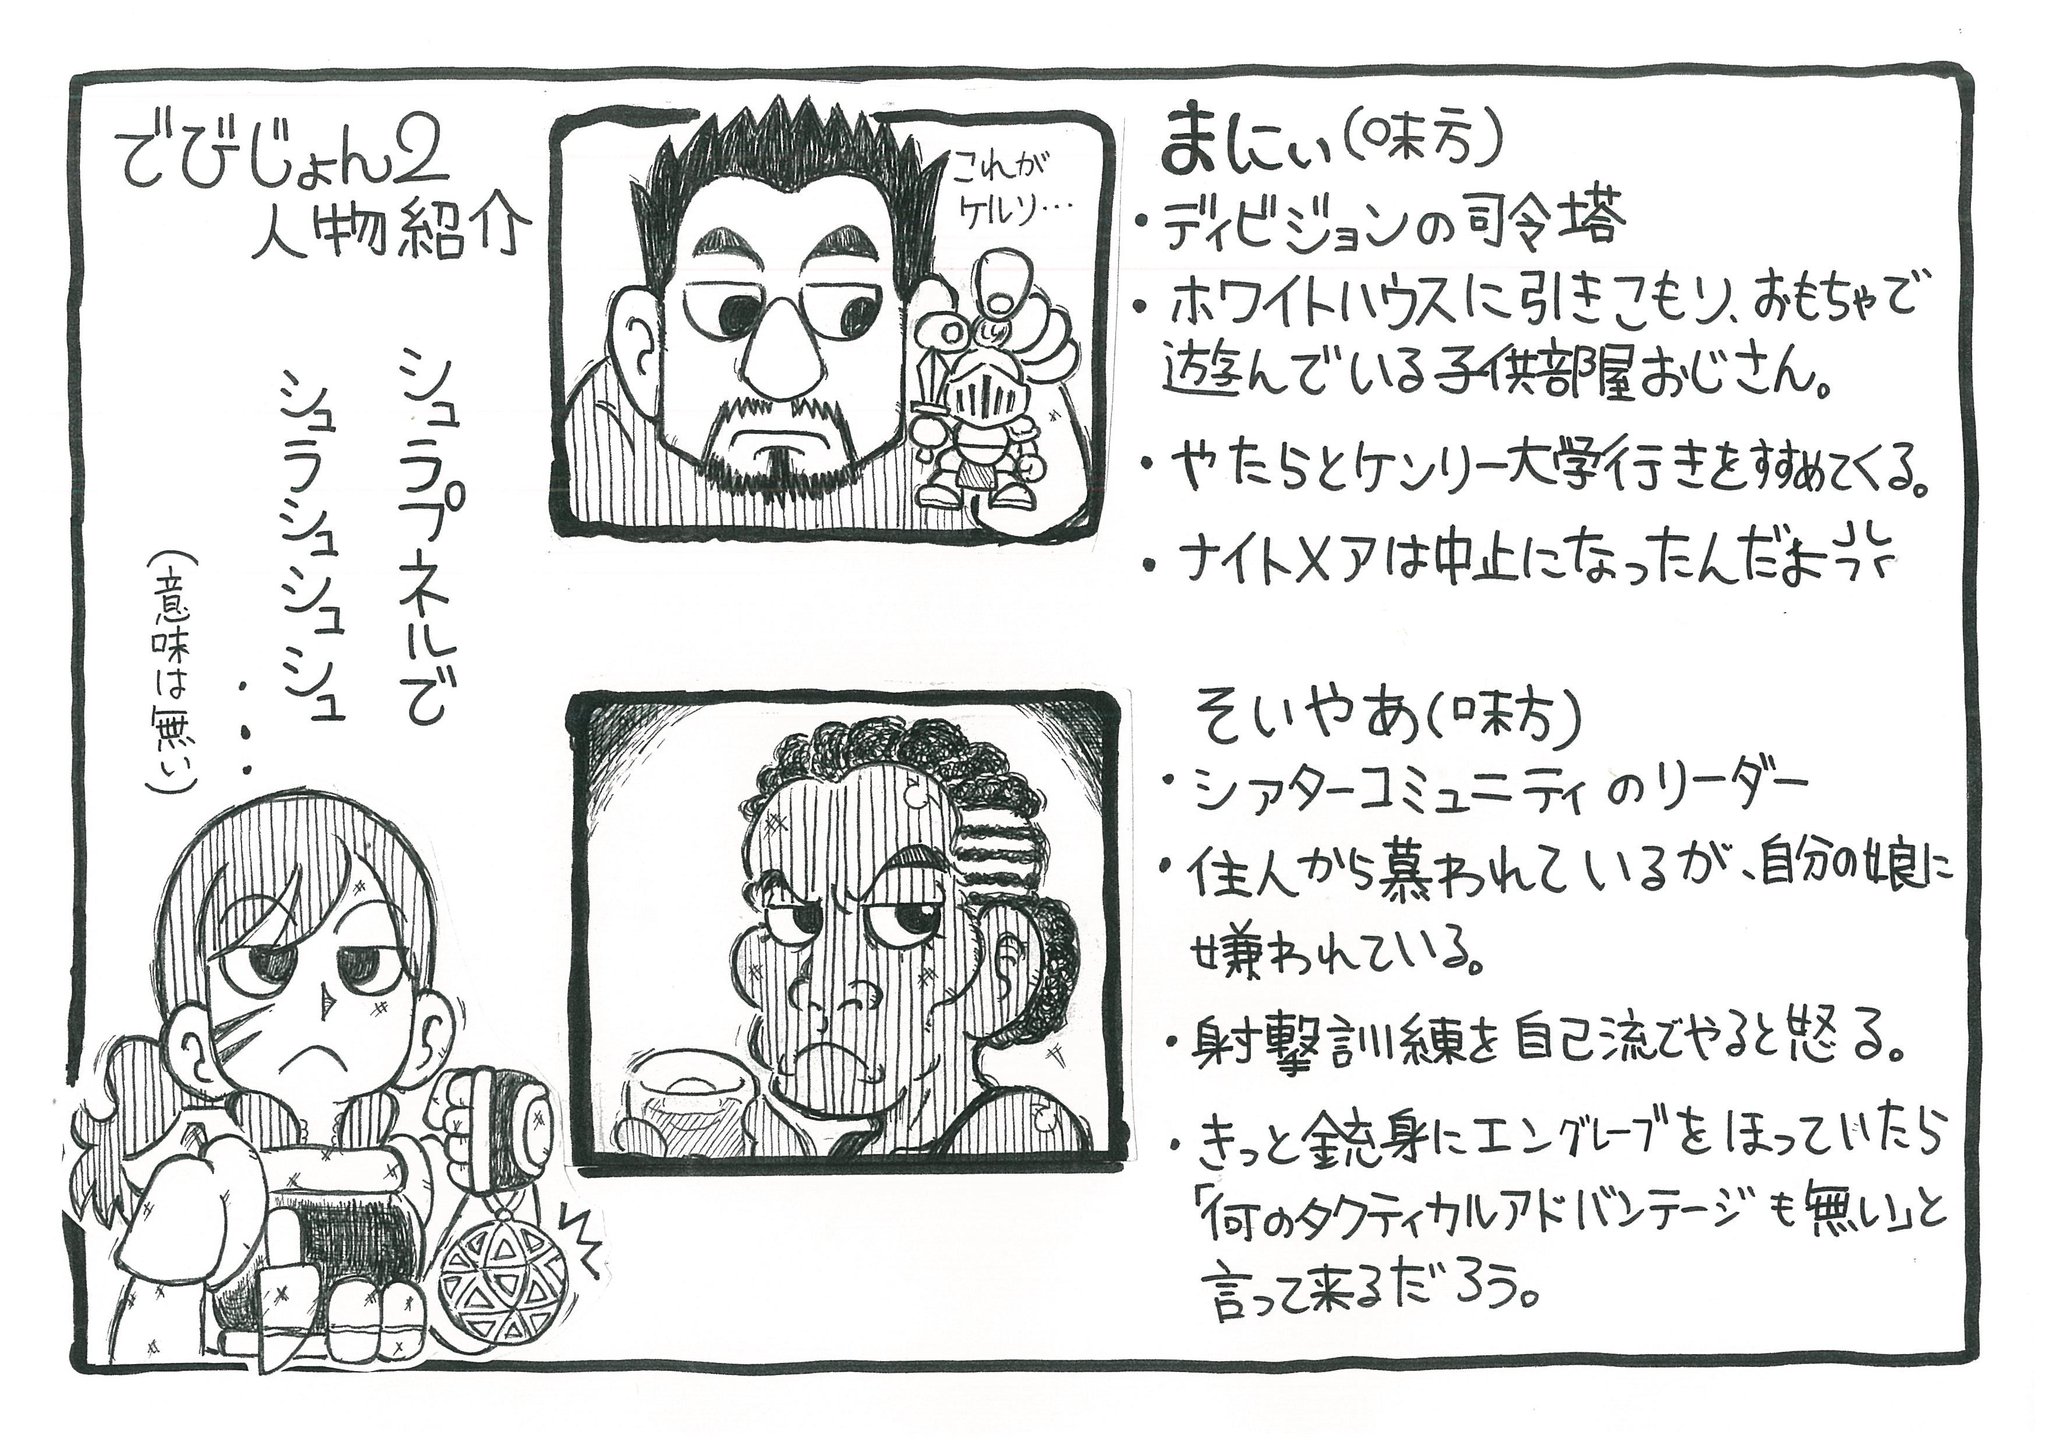 でびじょん2
人物紹介
シュラプネルで
シュラシュシュシュ
・・・
(意味は無い)
これが
ケルソ…
まにぃ(味方)
・ディビジョンの司令塔
・ホワイトハウスに引きこもり、おもちゃで
遊んでいる子供部屋おじさん。
・やたらとケンリー大学行きをすすめてくる。
・ナイトメアは中止になったんだよ
そいやあ(味方)
・シアターコミュニティのリーダー
・住人から慕われているが、自分の娘に
嫌われている。
・射撃訓練を自己流でやると怒る。
・きっと銃身にエングレーブをほっていたら
「何のタクティカルアドバンテージも無い」と
言って来るだろう。